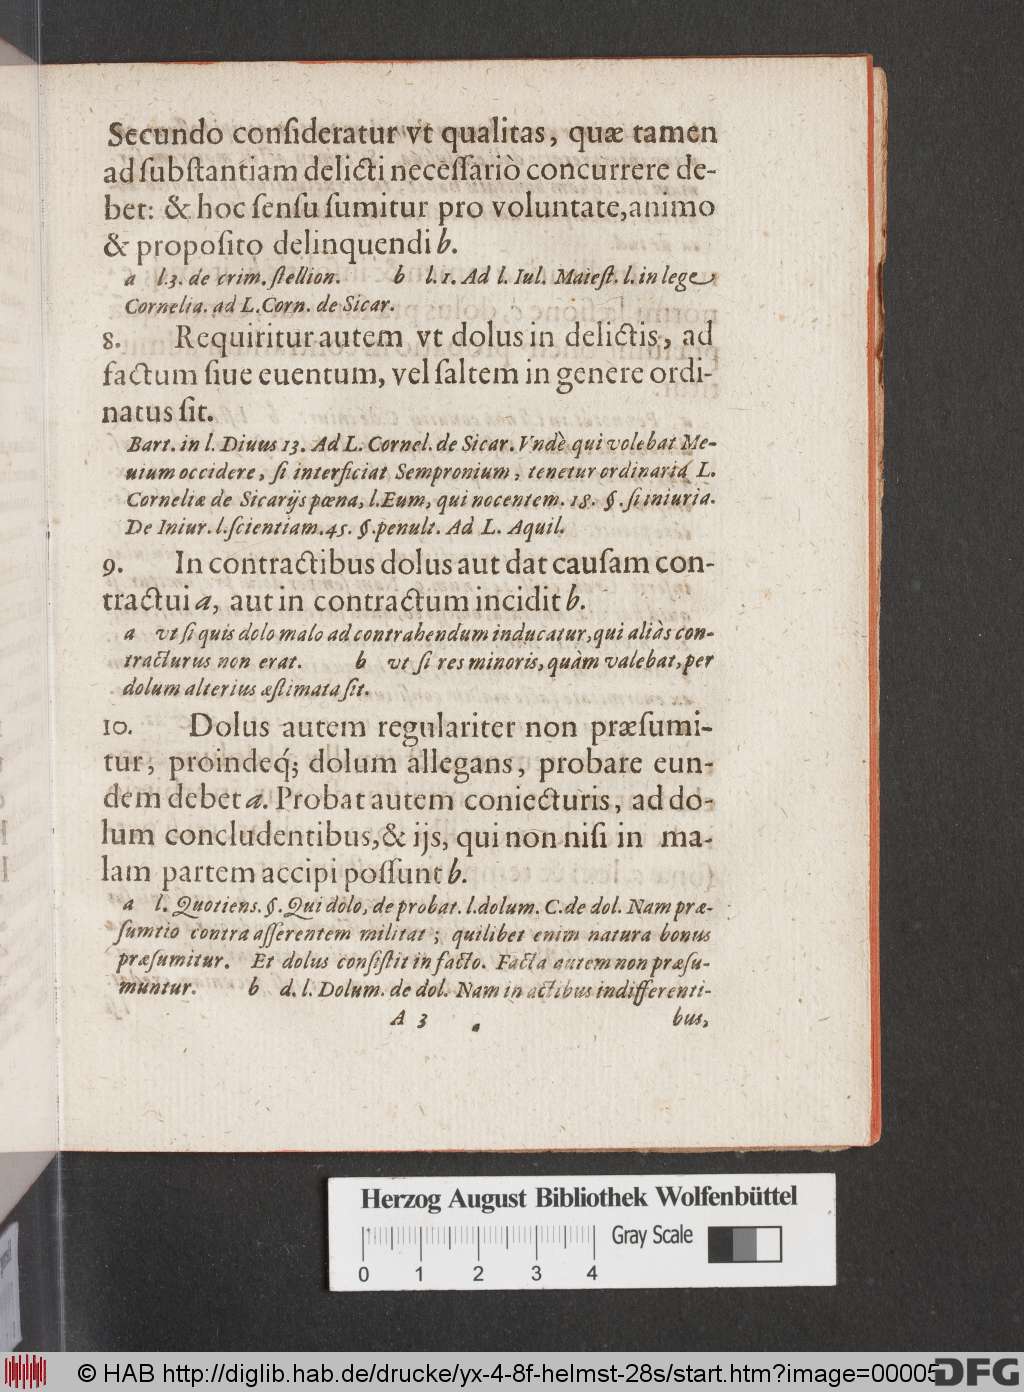 Secundo conſideratur vt qualitas, quæ tamen
ad ſubſtantiam delicti neceſſariò concurrere de-
bet: & hoc ſenſu ſumitur pro voluntate, animo
& propoſito delinquendi b.
a l. 3. de crim. ſtellion. b l. 1. Ad l. Iul. Maieſt. l. in lege
Cornelia. ad L. Corn. de Sicar.
8. Requiritur autem vt dolus in delictis, ad
factum ſiue euentum, vel ſaltem in genere ordi-
natus ſit.
Bart. in l. Diuus 13. Ad L. Cornel. de Sicar. Vndè qui volebat Me-
uium occidere, ſi interficiat Sempronium, tenetur ordinaria L.
Corneliæ de Sicarijs pœna, l. Eum, qui nocentem. 18. §. ſi iniuria.
De Iniur. l. ſcientiam. 45. §. penult. Ad L. Aquil.
9. In contractibus dolus aut dat cauſam con-
tractui a, aut in contractum incidit b.
a vt ſi quis dolo malo ad contrahendum inducatur, qui aliàs con-
tracturus non erat. b vt ſi res minoris, quàm valebat, per
dolum alterius æſtimata ſit.
10. Dolus autem regulariter non præſumi-
tur, proindeq́; dolum allegans, probare eun-
dem debet a. Probat autem coniecturis, ad do-
lum concludentibus, & ijs, qui non niſi in ma-
lam partem accipi poſſunt b.
a l. Quotiens. §. Qui dolo, de probat. l. dolum. C. de dol. Nam præ-
ſumtio contra aſſerentem militat; quilibet enim natura bonus
præſumitur. Et dolus conſiſtit in facto. Facta autem non præſu-
muntur. b d. l. Dolum. de dol. Nam in actibus indifferenti-
A 3 bus,
Herzog August Bibliothek Wolfenbüttel
Gray Scale
0 1 2 3 4
© HAB http://diglib.hab.de/drucke/yx-4-8f-helmst-28s/start.htm?image=00005
DFG